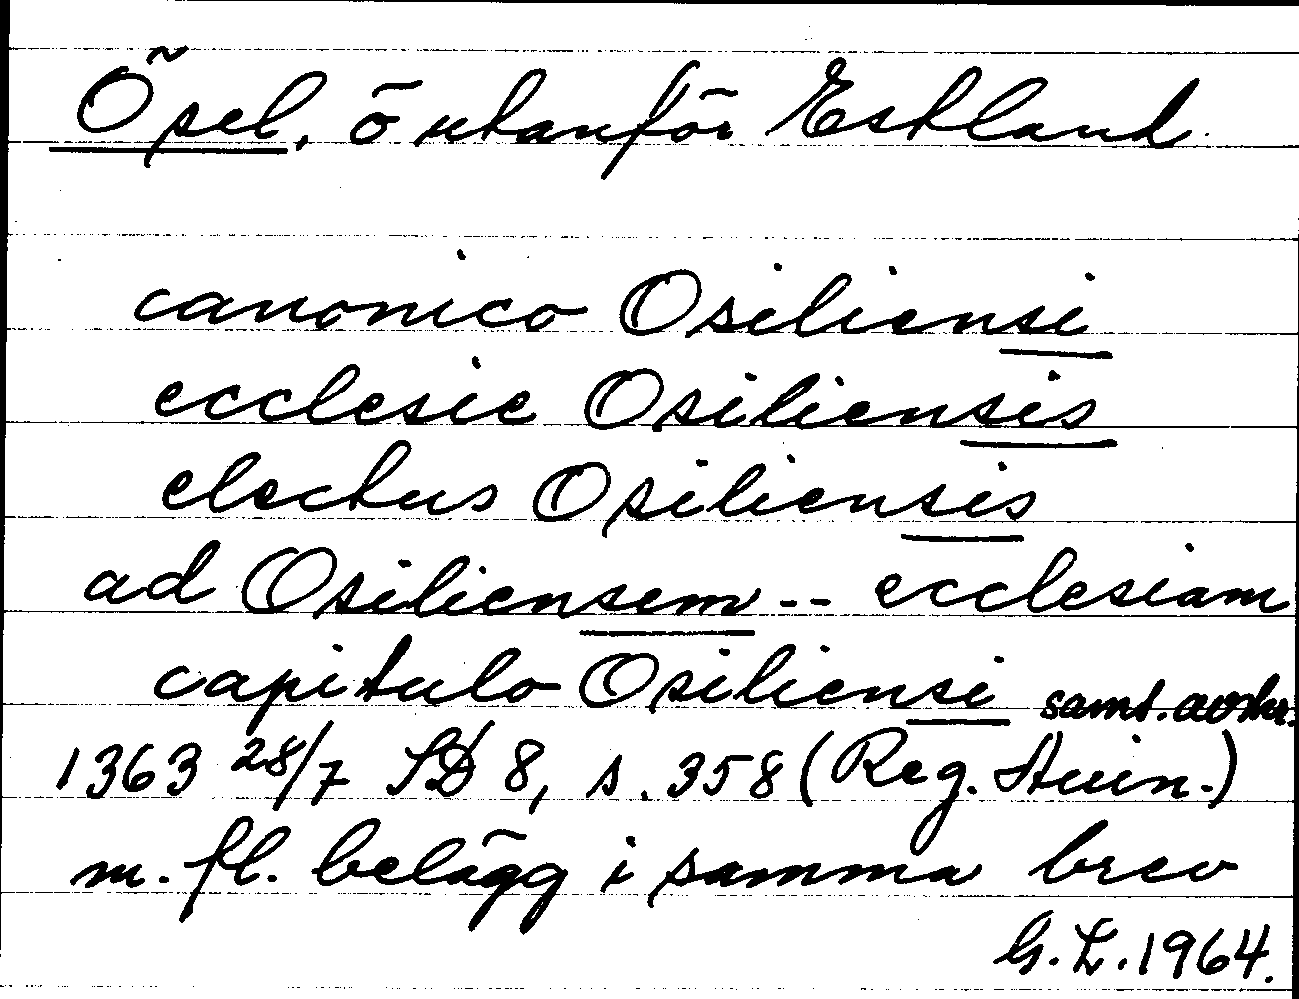 Ösel, ö utanför Estland
canonico Osiliensi
ecclesie Osiliensis
electus Osiliensis
ad Osiliensem -- ecclesiam
capitulo Osiliensi samt. avskr.
1363 28/7 SD 8, s. 358 (Reg. Avin.)
m. fl. belägg i samma brev
G. L. 1964.